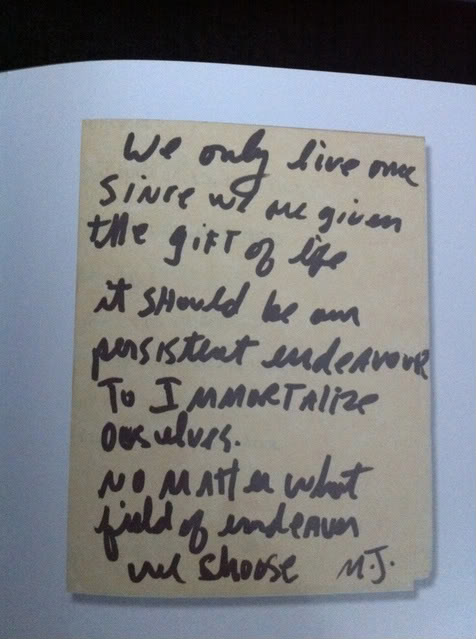 We only live once
Since we are given
the gift of life
it should be our
persistent endeavour
To Immortalize
ourselves.
No matter what
field of endeavor
we choose M.J.